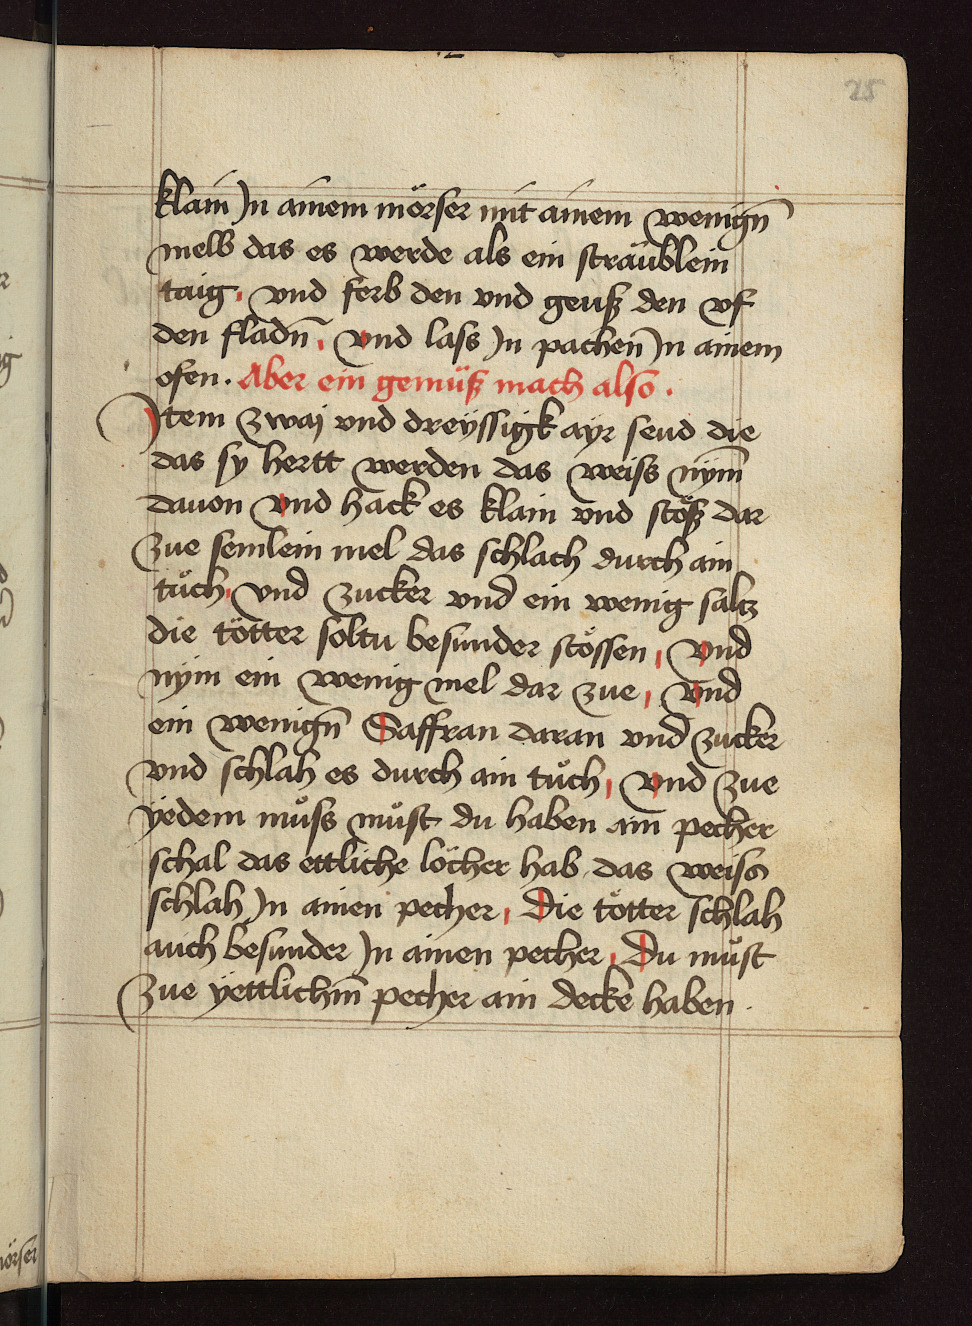 25
klain Jn ainem mörser mit ainem wenign̄
melb das es werde als ein sträublein
taig, vnd ferb den vnd geuß den vf
den fladn̄, vnd lass Jn pachen̄ Jn ainem
ofen. Aber ein gemüß mach also.
Jtem zwaj vnd dreyssigk ayr seud die
das sy hertt werden das weiss nym̄
dauon vnd hack es klain vnd stöß dar
zue semlein mel das schlach durch ain
tůch, vnd zucker vnd ein wenig saltz
die tötter soltu besunder stössen, vnd
nÿm ein wenig mel dar zue, vnd
ein wenign̄ Saffran daran vnd zucker
vnd schlah es durch ain tůch, vnd zue
yedem můss můst du haben ain pecher
schal das ettliche löcher hab das weiss
schlah Jn ainen pecher, Die tötter schlah
auch besunder Jn ainen pecher, Du můst
zue ÿettlichm̄ pecher ain decke haben.
mörser